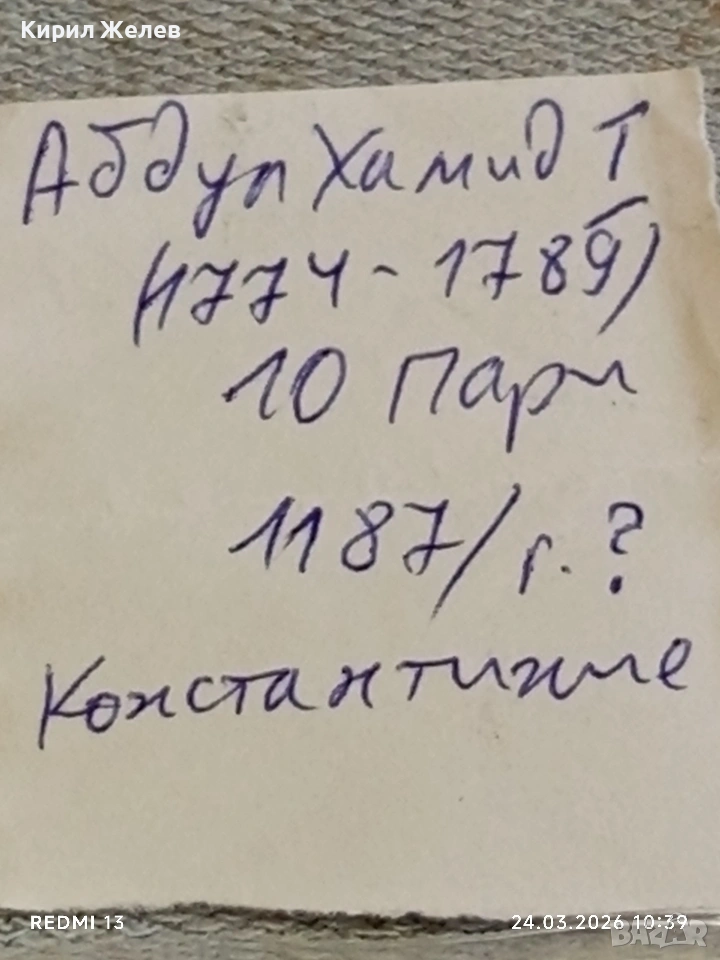 Кирил Желев
Абдул Хамид I
(1774 - 1789)
10 Пари
1187/г. ?
Константиние
REDMI 13
24.03.2026 10:39
BAZAR